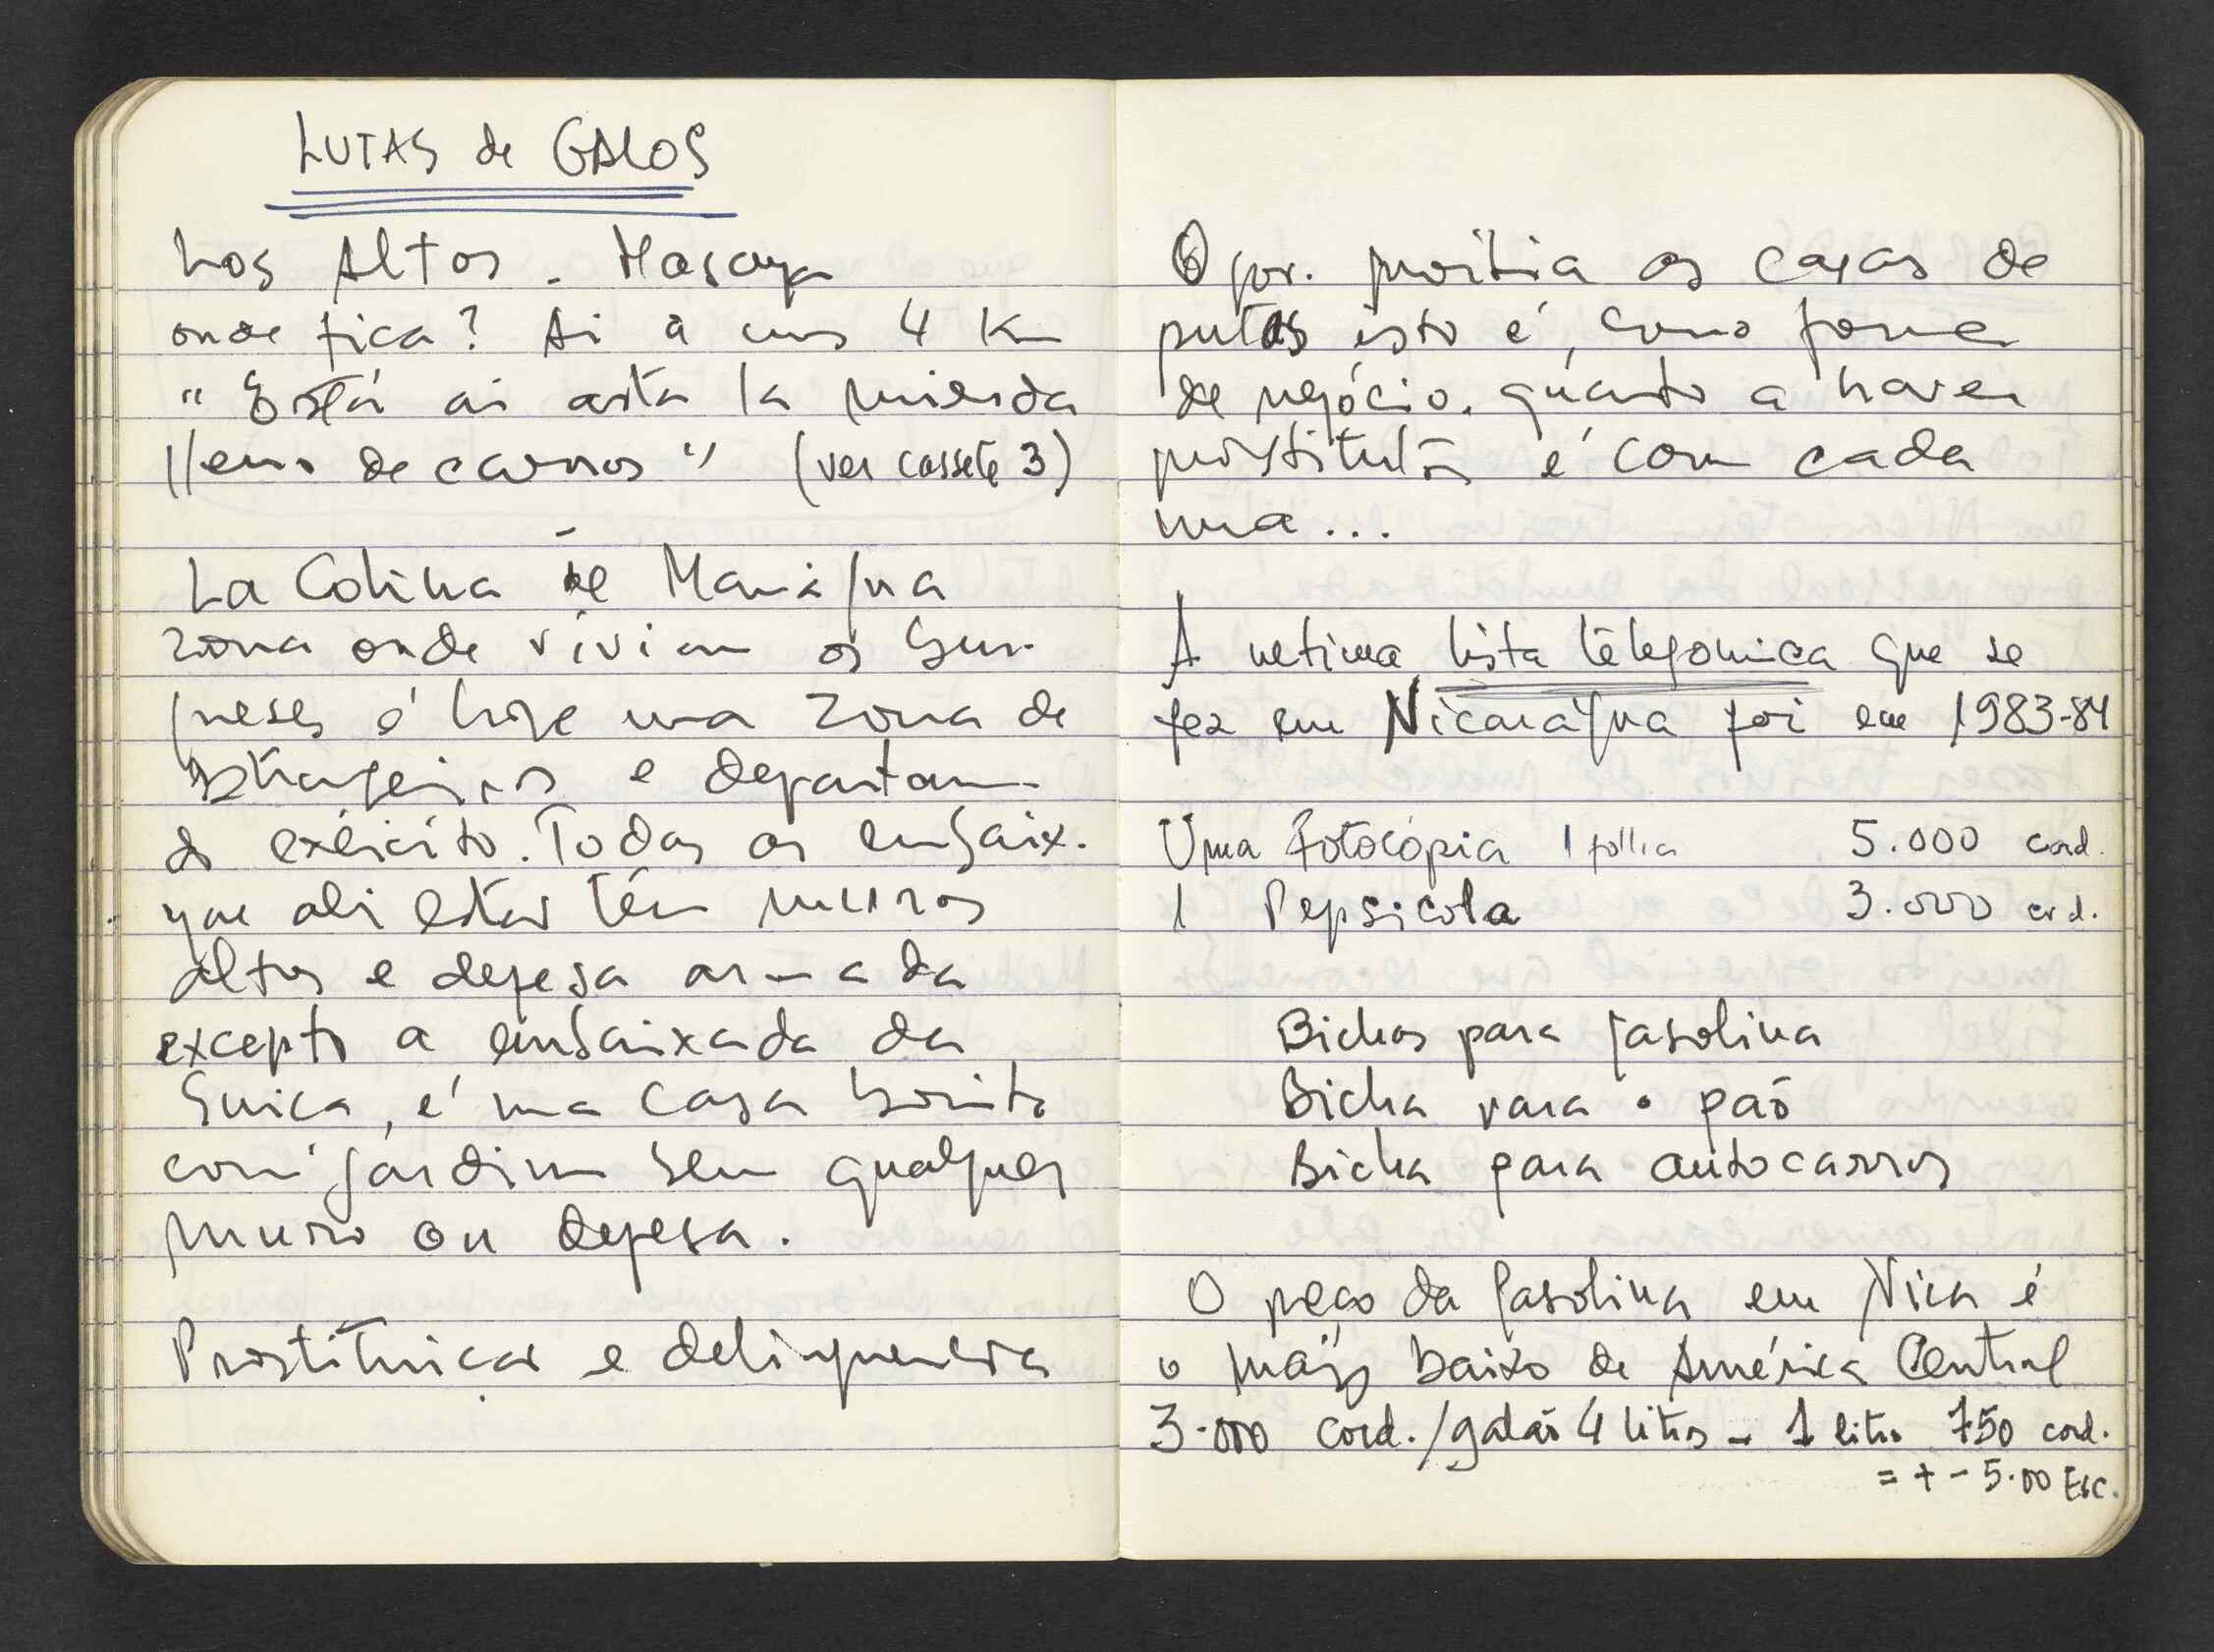 LUTAS de GALOS
Los Altos - Masaya
onde fica? Ai a uns 4 Km
"Está ai asta la mierda
lleno de carros" (ver cassete 3)
La Colina de Manágua
zona onde viviam os bur-
gueses é hoje uma zona de
estrangeiros e departam.
do exército. Todas as embaix.
que ali estão têm muros
altos e defesa armada
excepto a embaixada da
Suica, é uma casa bonita
com jardim sem qualquer
muro ou defesa.
Prostituicao e delinquencia
O gov. proibia as casas de
putas isto é, como forma
de negócio. quanto a haver
é com cada
uma...
A ultima lista telefonica que se
fez em Nicarágua foi em 1983-84
Uma Fotocópia 1 folha 5.000 cord.
1 Pepsicola 3.000 cord.
Bichas para gasolina
Bicha para o pão
Bicha para autocarros
O preço da gasolina em Nica é
o mais baixo de América Central
3.000 cord./galão 4 litros - 1 litro 750 cord.
= + - 5.00 Esc.